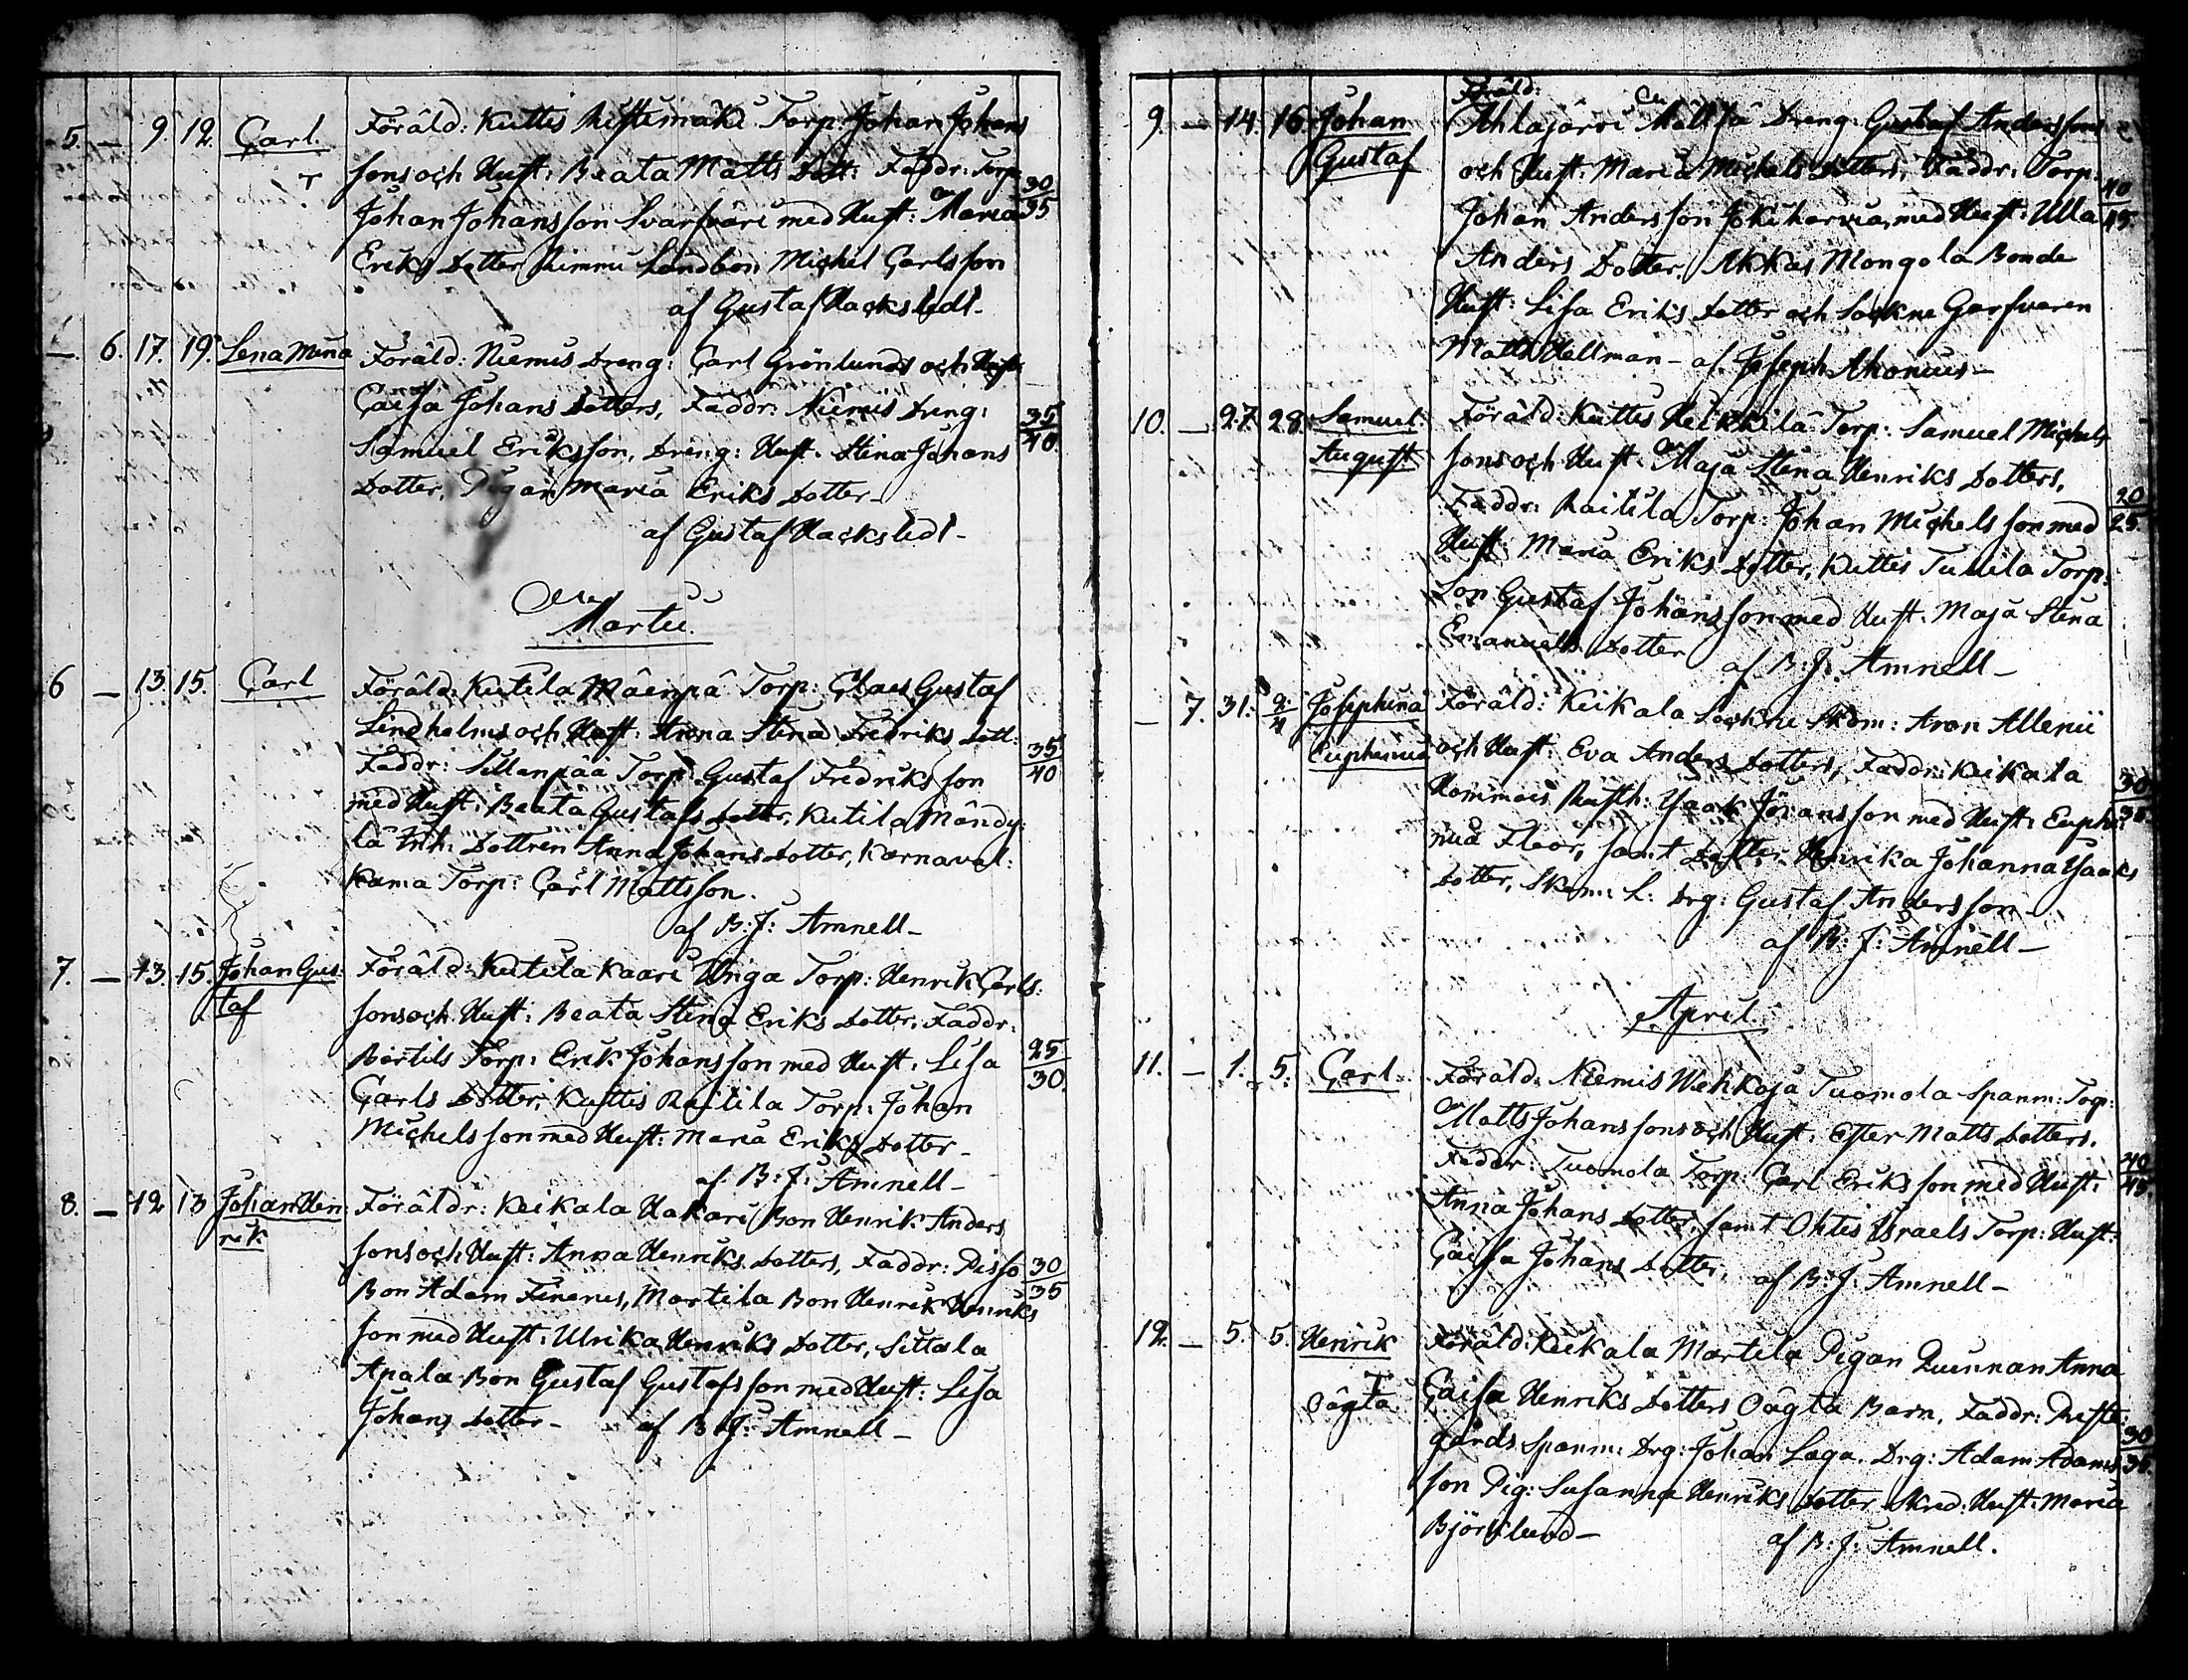 5. — 9. 12. Carl. Föräld: Kuttis Ristimäki Torp: Johan Johans
T sons och Hust: Beata Matts Dott: Faddr: Torp:
Johan Johansson Svarfvari med Hust: Maria 30/35
Eriks Dotter Rimmi Landbon Michel Carlsson
af Gustaf Hackstedt.
—. 6. 17. 19. Lena Mina Föräld: Niemis Dreng: Carl Grönlunds och Hust:
Caisa Johans Dotters, Faddr: Niemis Dreng: 35/40.
Samuel Eriksson, Dreng: Hust. Stina Johans
Dotter, Pigan Maria Eriks Dotter —
af Gustaf Hackstedt —
Martii.
6 — 13. 15. Carl Föräld: Kutila Mäenpä Torp: Claes Gustaf
Lindholms och Hust: Anna Stina Fredriks Dott: 35/40
Faddr: Sillanpää Torp: Gustaf Fredriksson
med Hust: Beata Gustafs Dotter, Kutila Mändy
lä Inh: Dottren Anna Johans Dotter, Karnaval:
Kama Torp: Carl Mattsson.
af B: J: Amnell —
7. — 13. 15. Johan Gus: Föräld: Kutila Kaari Uriga Torp: Henrik Carls:
taf sons och Hust: Beata Stina Eriks Dotter, Faddr:
Bertils Torp: Erik Johansson med Hust: Lisa 25/30.
Carls Dotter, Kuttis Raitila Torp: Johan
Michelsson med Hust: Maria Eriks Dotter —
af B: J: Amnell —
8. — 12 13 Johan Hen: Föräldr: Keikala Hakari Bon Henrik Anders
rik sons och Hust: Anna Henriks Dotters, Faddr: Pisso 30/35
Bon Adam Finerus, Martila Bon Henrik Henriks
son med Hust: Ulrika Henriks Dotter, Sittala
Apala Bon Gustaf Gustafsson med Hust: Lisa
Johans Dotter — af B: J: Amnell —
Föräld:
9. — 14. 16 Johan Ahlajärvi Mällsä Dreng: Gustaf Anderssons
Gustaf och Hust: Maria Michels Dotters, Faddr: Torp: 40/45.
Johan Andersson Jokiharvia, med Hust: Ulla
Anders Dotter, Akkas Mongola Bonde
Hust: Lisa Eriks Dotter och Sockne Garfvaren
Matts Hellman — af Joseph Ahonius —
10. — 27. 28. Samuel Föräld: Kuttis Heikkilä Torp: Samuel Michels
August sons och Hust. Maja Stina Henriks Dotters,
Faddr: Raitila Torp: Johan Michelsson med 20/25.
Hust: Maria Eriks Dotter, Kuttis Tuulila Torp:
Son Gustaf Johansson med Hust. Maja Stina
Emanuels Dotter af B: J: Amnell —
— 7. 31. 2/4 Josephina Föräld: Keikala Sockne Skom: Aron Allenii
Euphemia och Hust: Eva Anders Dotters, Faddr: Keikala 30/35.
Hommais Rusth: Isaak Johansson med Hust: Euphe:
mia Floor, samt Dotter Henrika Johanna Isaaks
Dotter, Skom: L: Drg: Gustaf Andersson —
af B: J: Amnell —
April.
11. — 1. 5. Carl. Föräld: Niemis Wehkoja Tuomola Spanm: Torp:
Matts Johanssons och Hust: Ester Matts Dotters.
Faddr: Tuomola Torp: Carl Eriksson med Hust: 40/45
Anna Johans Dotter, samt Ohtis Israels Torp: Hust:
Caisa Johans Dotter, af B: J: Amnell —
12. — 5. 5. Henrik Föräld: Keikala Martila Pigan Quinnan Anna
T Oägta Caisa Henriks Dotters Oägta Barn, Faddr: Prest
gårds Spanm: Drg: Johan Laga. Drg: Adam Adams 30/35.
son Pig: Susanna Henriks Dotter. Skred: Hust: Maria
Björklund —
af B: J: Amnell.